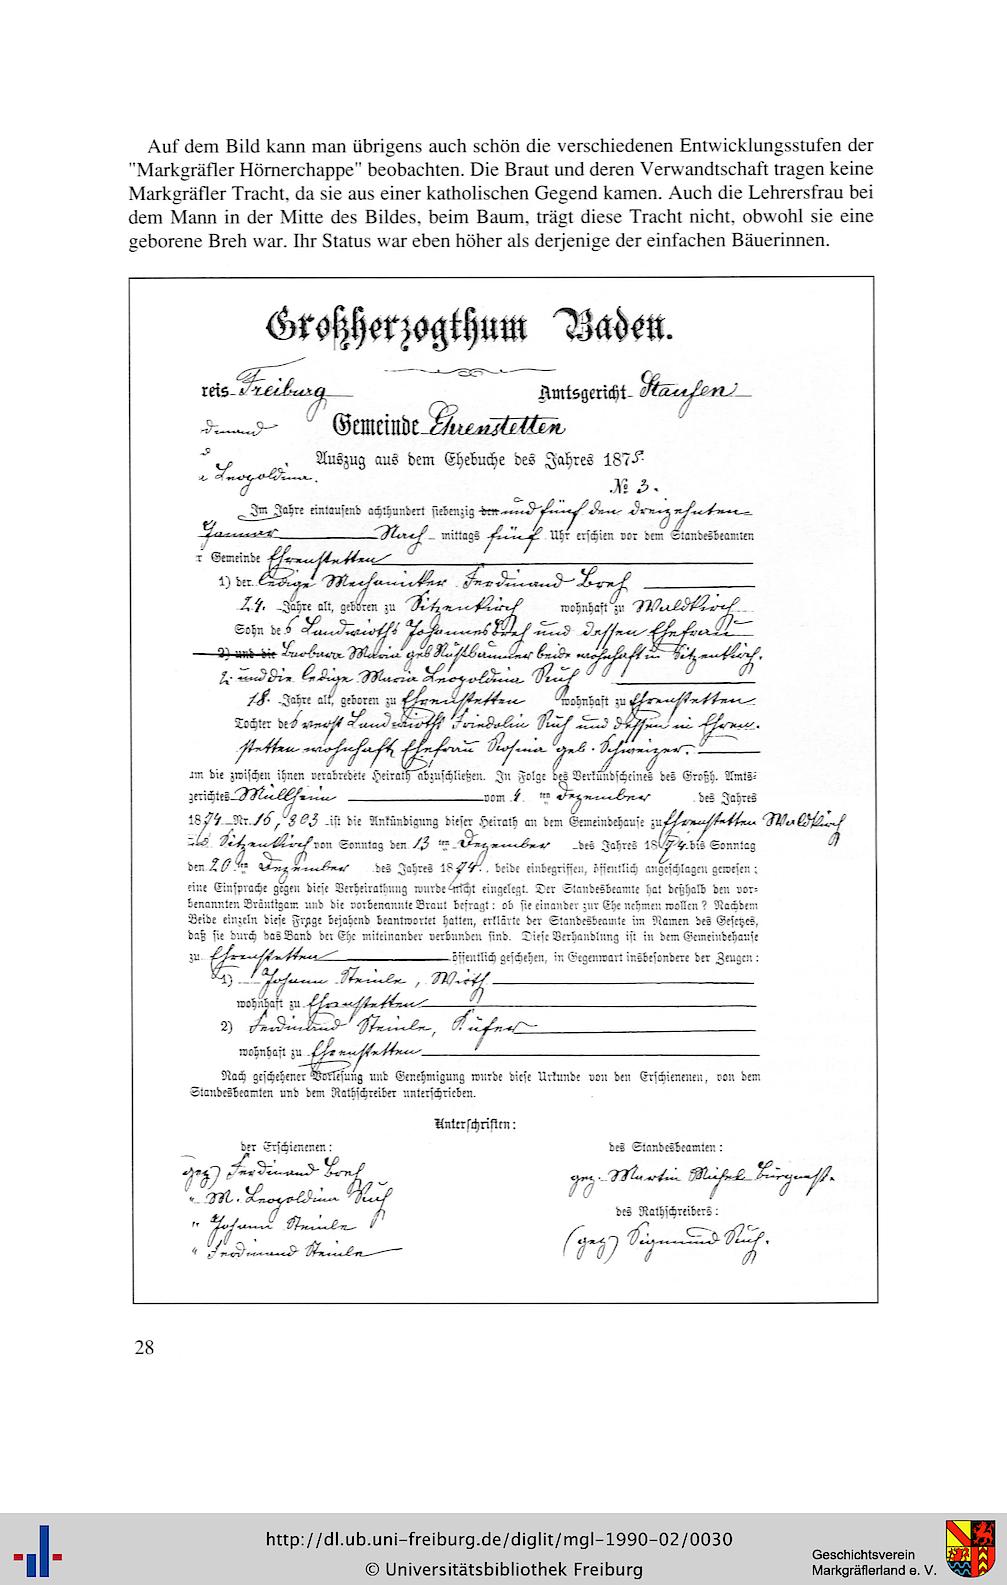 Auf dem Bild kann man übrigens auch schön die verschiedenen Entwicklungsstufen der
"Markgräfler Hörnerchappe" beobachten. Die Braut und deren Verwandtschaft tragen keine
Markgräfler Tracht, da sie aus einer katholischen Gegend kamen. Auch die Lehrersfrau bei
dem Mann in der Mitte des Bildes, beim Baum, trägt diese Tracht nicht, obwohl sie eine
geborene Breh war. Ihr Status war eben höher als derjenige der einfachen Bäuerinnen.
Großherzogthum Baden.
reis Freiburg Amtsgericht Staufen
dinand Gemeinde Ehrenstetten
Auszug aus dem Ehebuche des Jahres 1875.
Leopoldina.
№ 3.
Im Jahre eintausend achthundert siebenzig den und fünf den dreizehnten
Januar Nach mittags fünf Uhr erschien vor dem Standesbeamten
r Gemeinde Ehrenstetten
1) der ledige Mechaniker Ferdinand Breh
24. Jahre alt, geboren zu Sitzenkirch wohnhaft zu Waldkirch
Sohn des Landwirths Johannes Breh und dessen Ehefrau
2) und die Barbara Maria geb. Nußbaumer beide wohnhaft in Sitzenkirch.
2. und die ledige Maria Leopoldina Ruch
18. Jahre alt, geboren zu Ehrenstetten wohnhaft zu Ehrenstetten
Tochter des verst. Landwirths Fridolin Ruch und dessen in Ehren-
stetten wohnhaft Ehefrau Rosina geb. Schweizer.
um die zwischen ihnen verabredete Heirath abzuschließen. In Folge des Verkündscheines des Großh. Amts-
gerichtes Müllheim vom 4. ten Dezember des Jahres
1874 Nr. 16,803 ist die Ankündigung dieser Heirath an dem Gemeindehause zu Ehrenstetten Waldkirch
und Sitzenkirch von Sonntag den 13 ten Dezember des Jahres 1874. bis Sonntag
den 20. ten Dezember des Jahres 1874. beide einbegriffen, öffentlich angeschlagen gewesen;
eine Einsprache gegen diese Verheirathung wurde nicht eingelegt. Der Standesbeamte hat deßhalb den vor-
benannten Bräutigam und die vorbenannte Braut befragt: ob sie einander zur Ehe nehmen wollen? Nachdem
Beide einzeln diese Frage bejahend beantwortet hatten, erklärte der Standesbeamte im Namen des Gesetzes,
daß sie durch das Band der Ehe miteinander verbunden sind. Diese Verhandlung ist in dem Gemeindehause
zu Ehrenstetten öffentlich geschehen, in Gegenwart insbesondere der Zeugen:
1) Johann Steinle, Wirth
wohnhaft zu Ehrenstetten
2) Ferdinand Steinle, Küfer
wohnhaft zu Ehrenstetten
Nach geschehener Vorlesung und Genehmigung wurde diese Urkunde von den Erschienenen, von dem
Standesbeamten und dem Rathschreiber unterschrieben.
Unterschriften:
der Erschienenen: des Standesbeamten:
gez) Ferdinand Breh gez. Martin Michel Bürgermst.
" M. Leopoldina Ruch des Rathschreibers:
" Johann Steinle
" Ferdinand Steinle (gez) Sigmund Ruch.
28
http://dl.ub.uni-freiburg.de/diglit/mgl-1990-02/0030
© Universitätsbibliothek Freiburg
Geschichtsverein
Markgräflerland e. V.